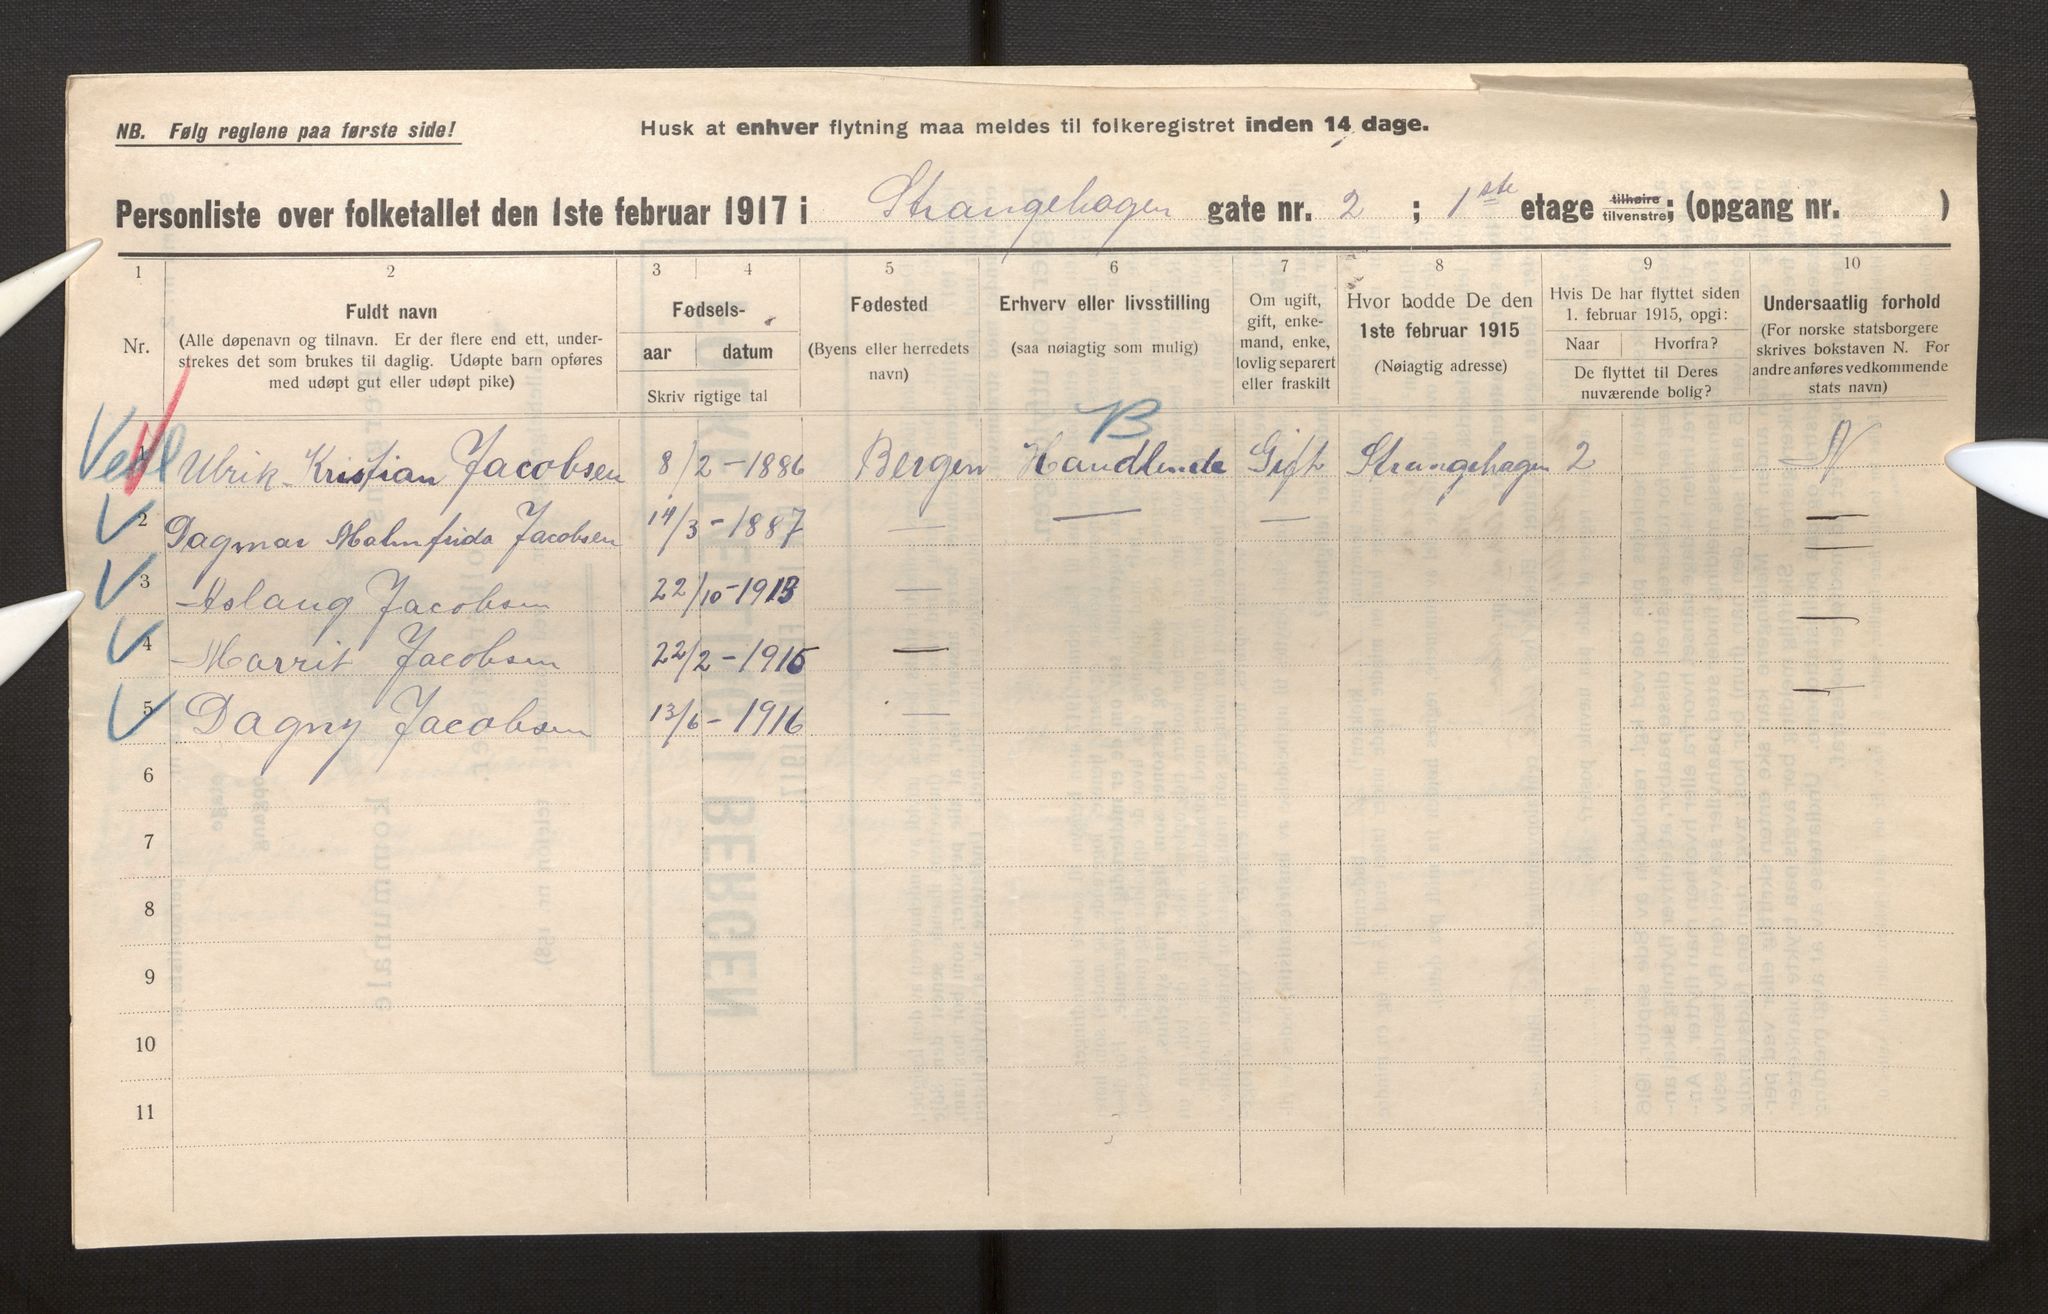 NB. Følg reglene paa første side!
Husk at enhver flytning maa meldes til folkeregistret inden 14 dage.
Personliste over folketallet den 1ste februar 1917 i Strangehagen gate nr. 2 ; 1ste etage tilhøire tilvenstre; (opgang nr. )
1 2 3 4 5 6 7 8 9 10
Nr.
Fuldt navn
(Alle døpenavn og tilnavn. Er der flere end ett, under-
strekes det som brukes til daglig. Udøpte barn opføres
med udøpt gut eller udøpt pike)
Fødsels-
aar datum
Skriv rigtige tal
Fødested
(Byens eller herredets
navn)
Erhverv eller livsstilling
(saa nøiagtig som mulig)
Om ugift,
gift, enke-
mand, enke,
lovlig separert
eller fraskilt
Hvor bodde De den
1ste februar 1915
(Nøiagtig adresse)
Hvis De har flyttet siden
1. februar 1915, opgi:
Naar Hvorfra?
De flyttet til Deres
nuværende bolig?
Undersaatlig forhold
(For norske statsborgere
skrives bokstaven N. For
andre anføres vedkommende
stats navn)
B
1 Ulrik Kristian Jacobsen 8/2 - 1886 Bergen Handlende Gift Strangehagen 2 N
2 Dagmar Malmfrida Jacobsen 14/3 - 1887 — — — —
3 Aslaug Jacobsen 22/10 - 1913 — —
4 Marrit Jacobsen 22/2 - 1915 — —
5 Dagny Jacobsen 13/6 - 1916 — —
6
7
8
9
10
11